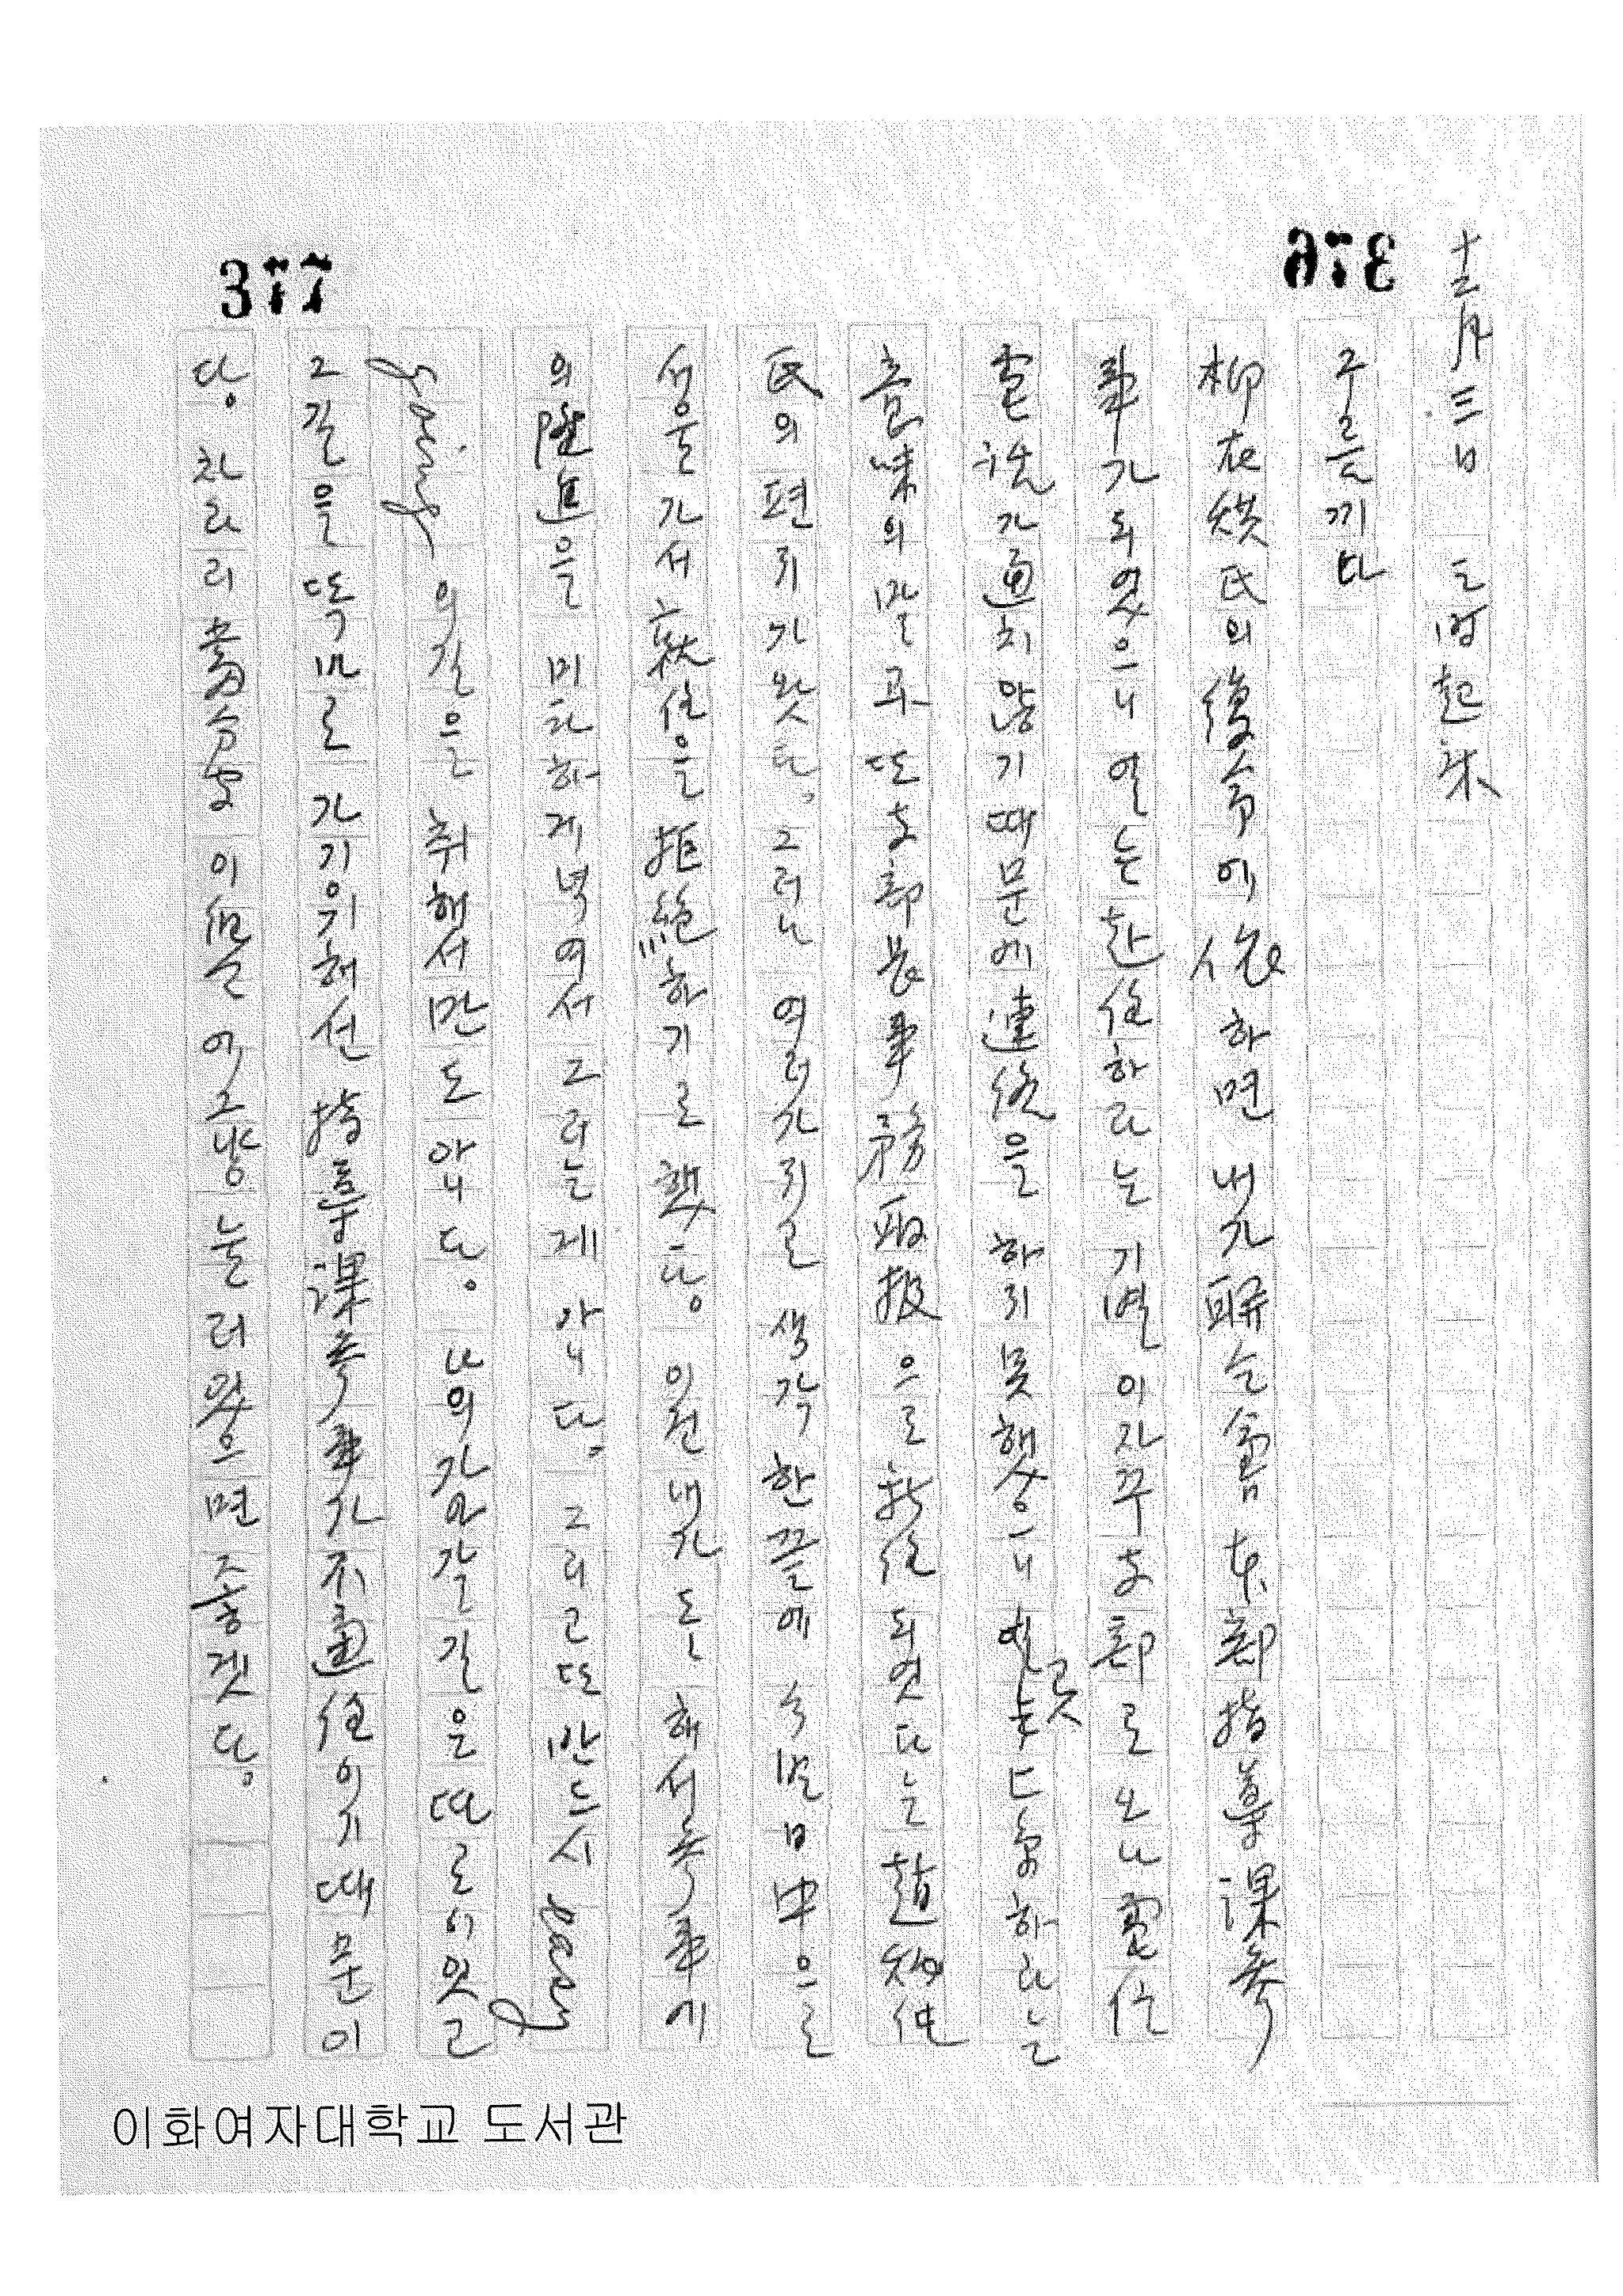 376
十二月三日 七時起床
구름끼다
柳在榮氏의 復命에 依하면 내가 聯盟 本部 指導課 參
事가 되였으니 열는 赴任하라는 기별이 자꾸 支部로 오나 電信
電話가 通치 않기 때문에 連絡을 하지 못했으니 곳 上京하라는
意味의 말과 또 支部長 事務取扱으로 新任되엿다는 趙
氏의 편지가 왓다. 그러나 여러가지로 생각한끝에 今明日中으로
서울가서 就任을 拒絶하기로 했다. 이전 내가 도 해서 參事에
의 陞進을 미하하게 녁여서 그러는게 아니다. 그리고 또 반드시
의 길을 취해서만도 않이다. 나의 가야갈 길은 따로이 잇고
그길을 똑바로 가기위해선 指導課 參事가 不適任이기 때문이
다. 차라리 이 그냥 눌러 있으면 좋겟다.
377
이화여자대학교 도서관